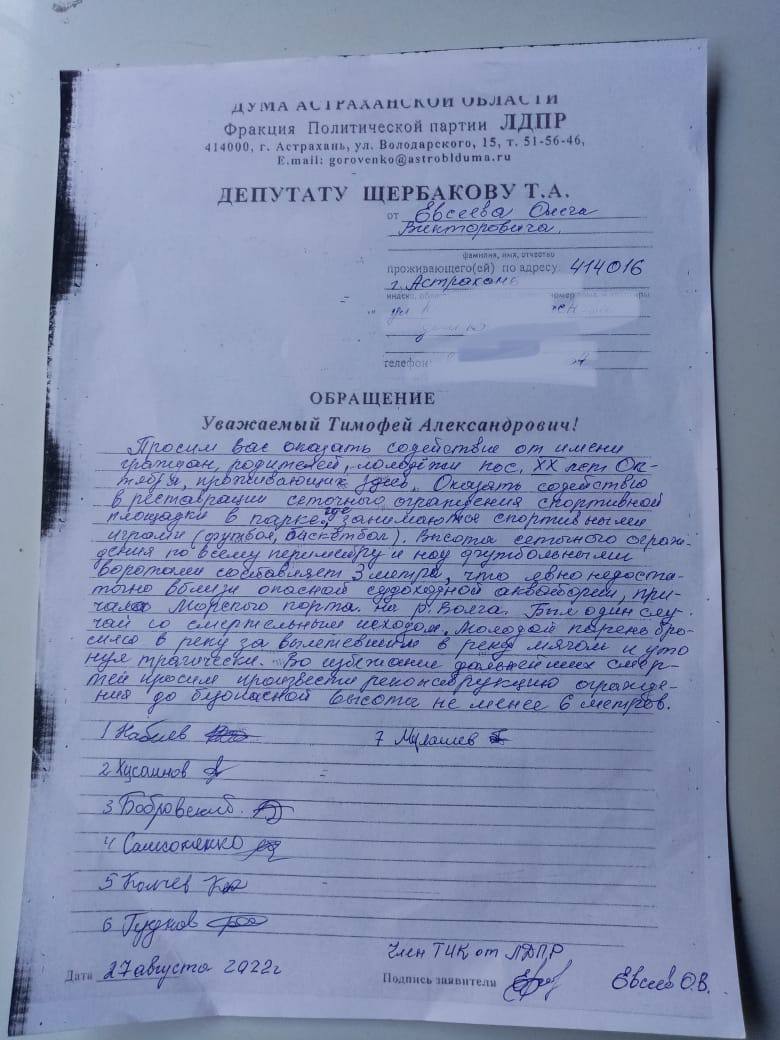 ДУМА АСТРАХАНСКОЙ ОБЛАСТИ
Фракция Политической партии ЛДПР
414000, г. Астрахань, ул. Володарского, 15, т. 51-56-46,
E.mail: gorovenko@astroblduma.ru
ДЕПУТАТУ ЩЕРБАКОВУ Т.А.
от Евсеева Олега
Викторовича,
фамилия, имя, отчество
проживающего(ей) по адресу: 414016
г. Астрахань
индекс,
ул
телефон:
ОБРАЩЕНИЕ
Уважаемый Тимофей Александрович!
Просим вас оказать содействие от имени
граждан, родителей, молодёжи пос. ХХ лет Ок-
тября, проживающих здесь. Оказать содействие
в реставрации сеточного ограждения спортивной
площадки в парке, где занимаются спортивными
играми (футбол, баскетбол). Высота сеточного ограж-
дения по всему периметру и над футбольными
воротами составляет 3 метра, что явно недоста-
точно вблизи опасной судоходной акватории, при-
чала Морского порта на р. Волга. Был один слу-
чай со смертельным исходом. Молодой парень бро-
сился в реку за вылетевшим в реку мячом и уто
нул трагически. Во избежание дальнейших смер-
тей просим произвести реконструкцию огражде-
ния до безопасной высоты не менее 6 метров.
1 Набиев 7 Мулашев
2 Хусаинов
3 Бобровский
4 Самсоненко
5 Колчев
6 Гудков
Член ТИК от ЛДПР
Дата 27 августа 2022г Подпись заявителя Евсеев О.В.